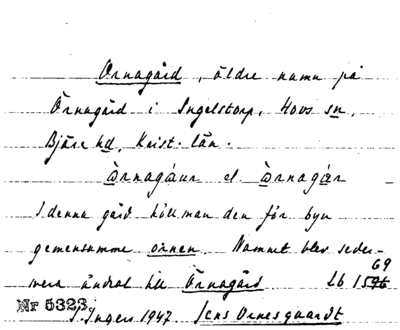 Ornagård, äldre namn på
Örnagård i Ingelstorp, Hovs sn,
Bjäre hd, Krist. län.
Òrnagáur el. òrnagår
I denna gård höll man den för byn
gemensamme ornen. Namnet blev seder-
mera ändrat till Örnagård. Lb 1526 69
Nr 5323. S. Ingers 1947. Jens Ornesgaardt